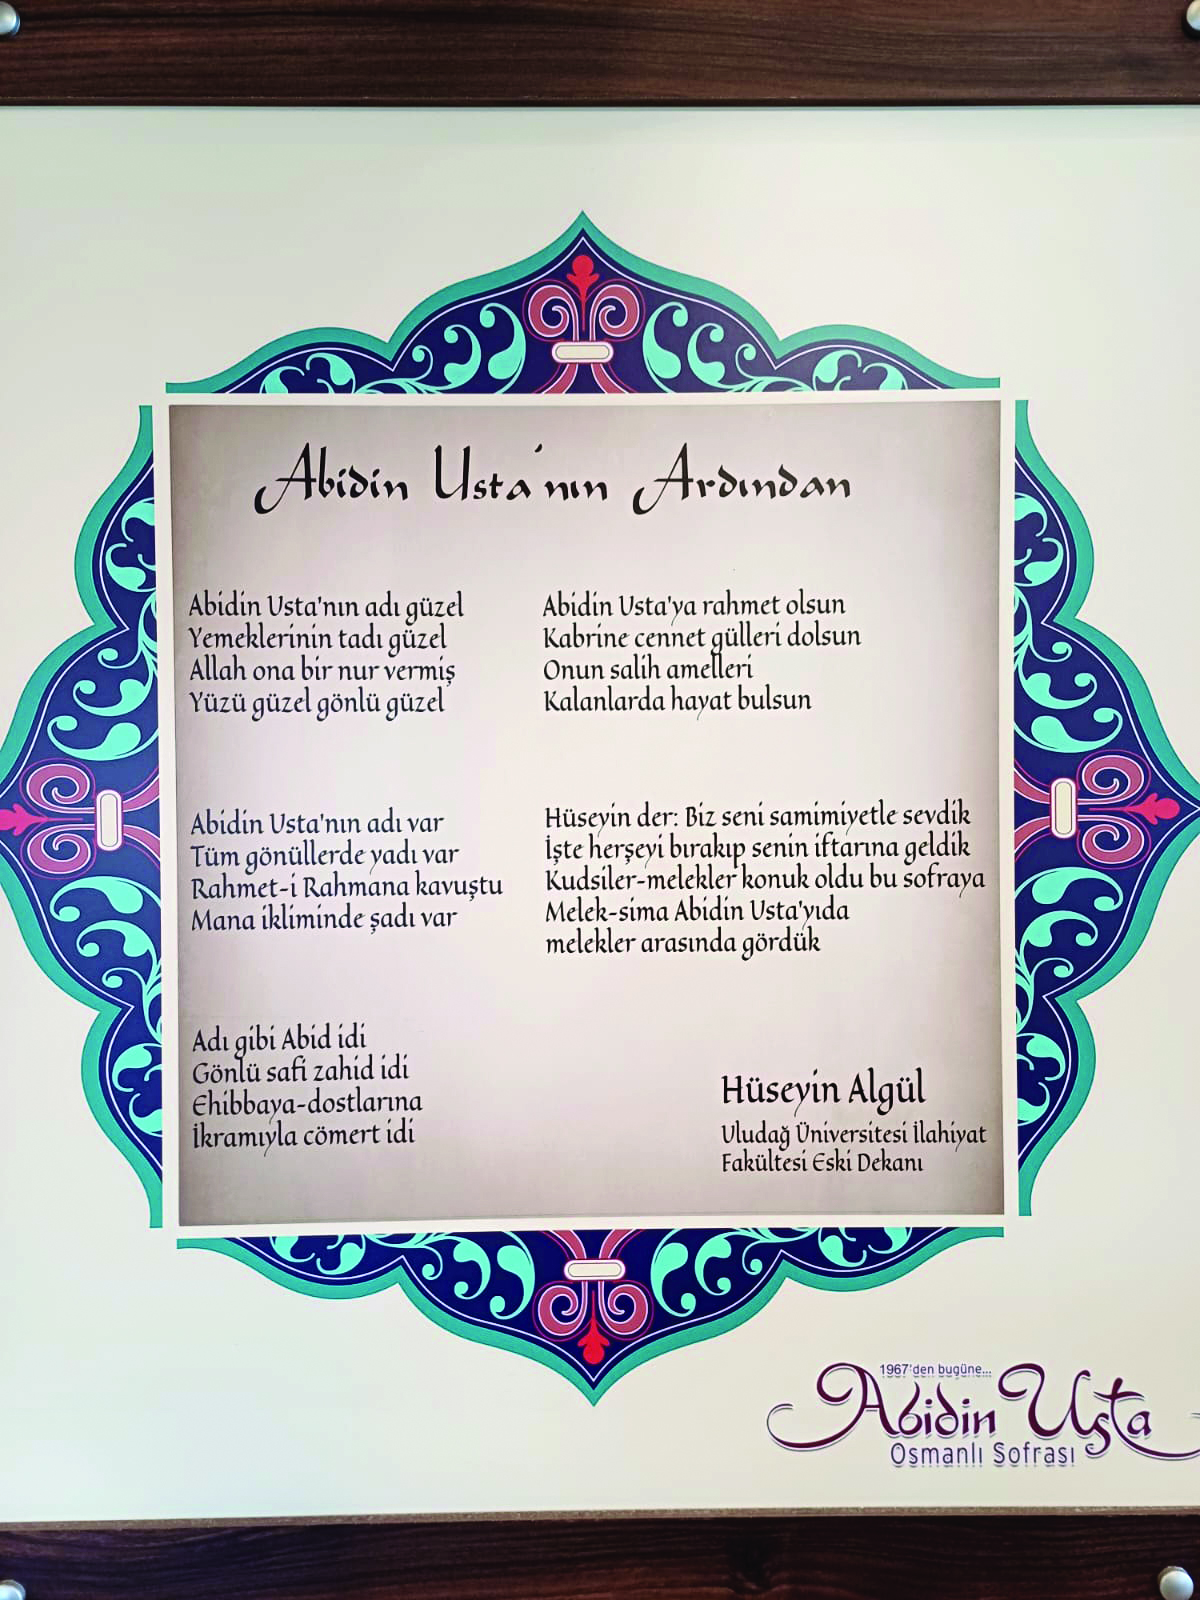 Abidin Usta'nın Ardından
Abidin Usta'nın adı güzel
Yemeklerinin tadı güzel
Allah ona bir nur vermiş
Yüzü güzel gönlü güzel
Abidin Usta'nın adı var
Tüm gönüllerde yadı var
Rahmet-i Rahmana kavuştu
Mana ikliminde şadı var
Adı gibi Abid idi
Gönlü safi zahid idi
Ehibbaya-dostlarına
İkramıyla cömert idi
Abidin Usta'ya rahmet olsun
Kabrine cennet gülleri dolsun
Onun salih amelleri
Kalanlarda hayat bulsun
Hüseyin der: Biz seni samimiyetle sevdik
İşte herşeyi bırakıp senin iftarına geldik
Kudsiler-melekler konuk oldu bu sofraya
Melek-sima Abidin Usta'yıda
melekler arasında gördük
Hüseyin Algül
Uludağ Üniversitesi İlahiyat
Fakültesi Eski Dekanı
1967'den bugüne...
Abidin Usta
Osmanlı Sofrası